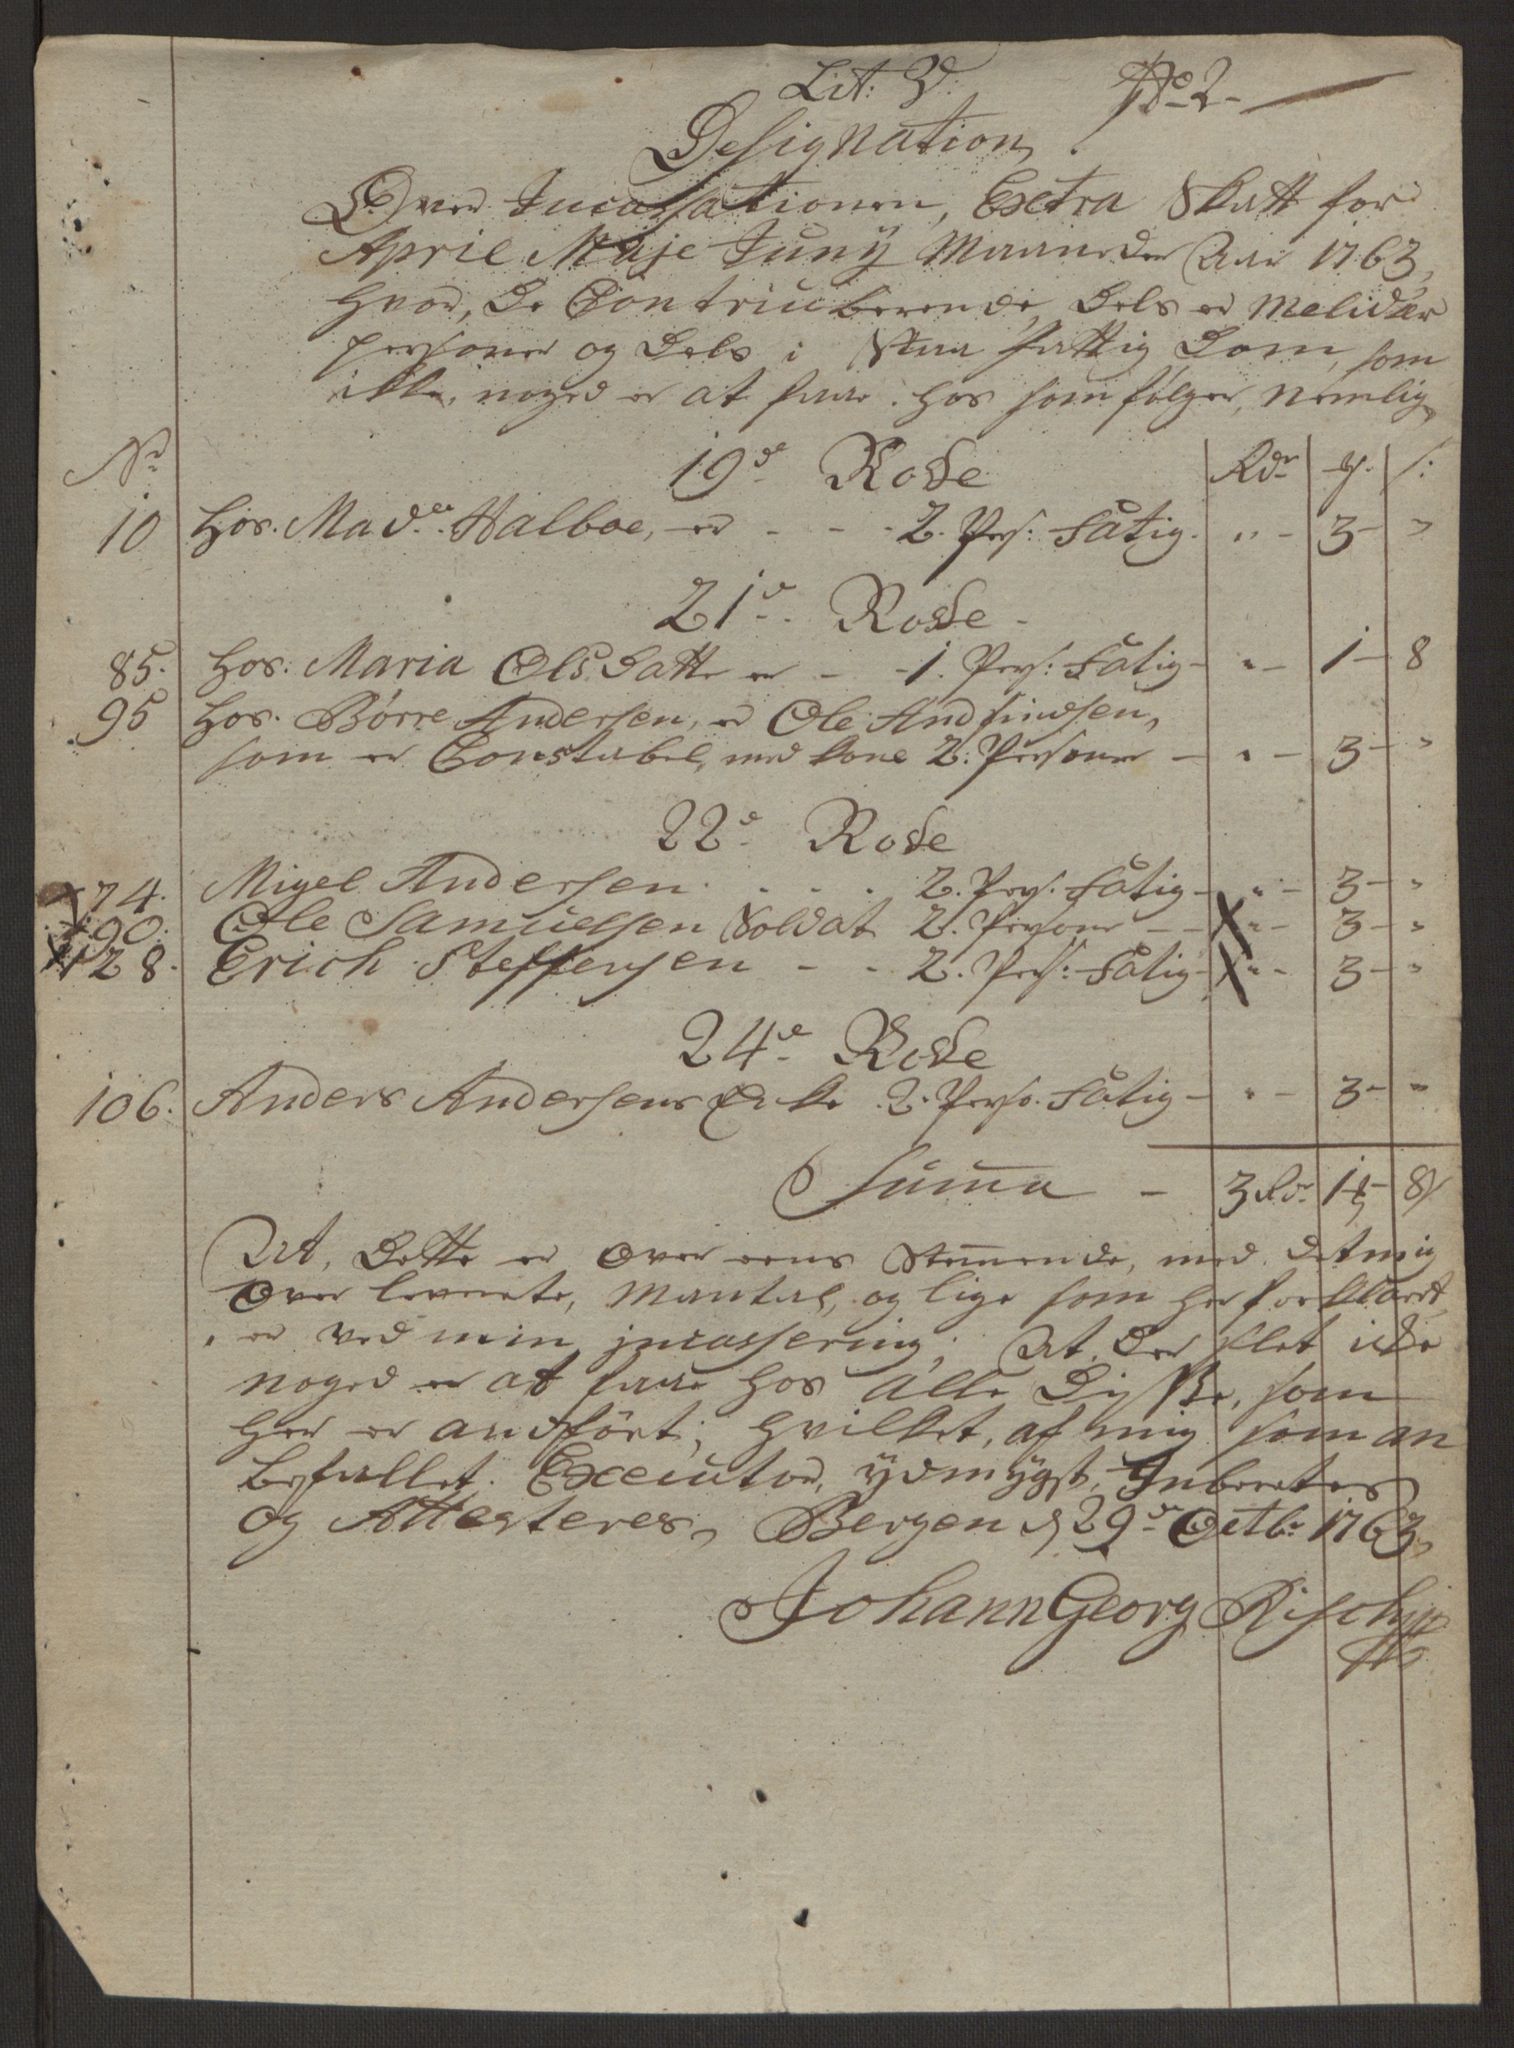 Lit: D: No 2
Designation
Over Incassationen, Extra Skatt for
April Maje Juny Maaneder Aar 1763,
hvor, De Contriuberende, Dels er Melidær
personer og Dels i Staa fattig Dom, som
ikke, noged er at faae hos som følger, nemlig
No 19de Rode Rdr ꝑ s:
10 hos. Made. Halboe, er - - - 2. Pers: Fatig. " - 3 - "
21de Rode
85. hos. Maria Ols Datter er - - 1. Pers: Fatig - " - 1 - 8
95 hos. Børre Andersen, er Ole Andfindsen,
som er Constabel, med kone 2: Personer - " - 3 - "
22de Rode
74. Migel Andersen . . . . 2. Pers. Fatig - " - 3 - "
90. Ole Samuelsen Soldat 2. Persone - - X " - 3 - "
128. Erich Steffensen - - 2. Pers: Fatig - X " - 3 - "
24de Rode
106. Anders Andersens Enke 2. Perso. Fatig - " - 3 - "
Suma - 3 Rdr 1 ꝑ 8 s
At, Dette er over eens Stemmende, med det mig
over leverete, Mantal, og lige som her forklaret,
er ved min incassering; At Der slet icke
noged er at faae hos alle Disse, som
her er andført; hvilket, af mig som an
befallet Executor, ydmygst, Inberetes
og Attesteres, Bergen d 29de Octbr 1763
Johann Georg Risch